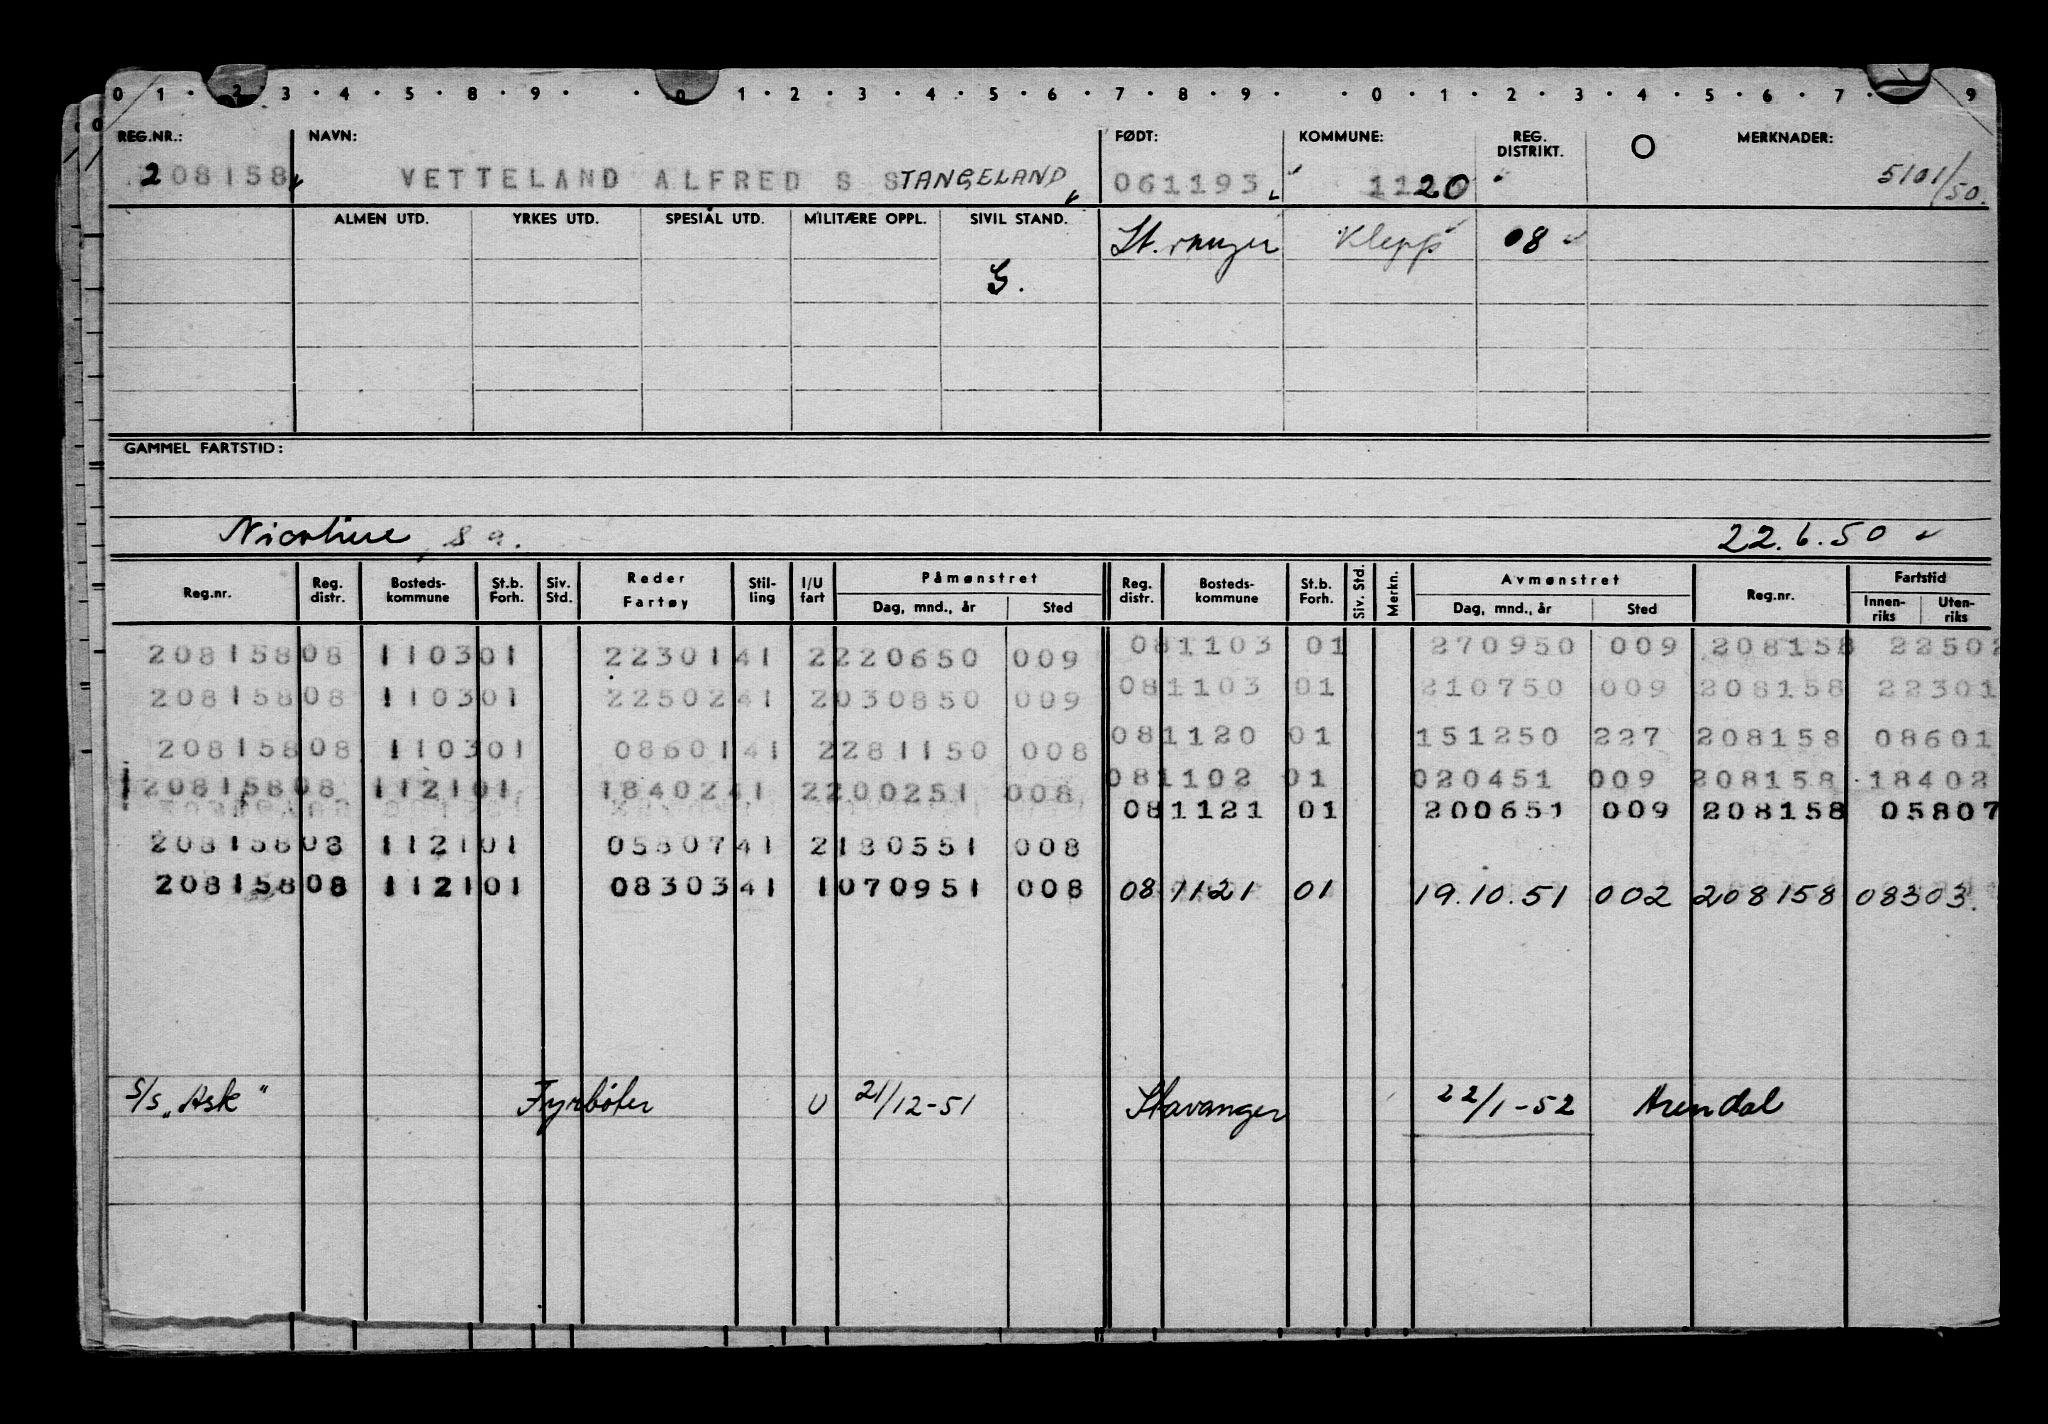 0 1 · 2 3 · 4 · 5 · 8 · 9 · · 0 1 · 2 · 3 · 4 · 5 · 6 · 7 · 8 · 9 · · 0 · 1 · 2 · 3 · 4 · 5 · 6 · 7 · 9
REG.NR.: NAVN: FØDT: KOMMUNE: REG. DISTRIKT. O MERKNADER:
208158 VETTELAND ALFRED S STANGELAND 061193 1120 5101/50.
ALMEN UTD. YRKES UTD. SPESIAL UTD. MILITÆRE OPPL. SIVIL STAND. Klepp 08
G.
GAMMEL FARTSTID:
Nicoline, 22.6.50
Reg.nr. Reg. distr. Bosteds-kommune St.b. Forh. Siv. Std. Reder Fartøy Stil-ling I/U fart Påmønstret Dag, mnd., år Sted Reg. distr. Bosteds-kommune St.b. Forh. Siv. Std. Merkn. Avmønstret Dag, mnd., år Sted Reg.nr. Fartstid Innen-riks Uten-riks
208158 08 1103 01 22301 41 2 220650 009 08 1103 01 270950 009 208158 22502
208158 08 1103 01 22502 41 2 030850 009 08 1103 01 210750 009 208158 22301
208158 08 1103 01 08601 41 2 281150 008 08 1120 01 151250 227 208158 08601
208158 08 1121 01 18402 41 2 200251 008 08 1102 01 020451 009 208158 18402
08 1121 01 200651 009 208158 05807
208158 08 1121 01 05807 41 2 180551 008
208158 08 1121 01 08303 41 1 070951 008 08 1121 01 19.10.51 002 208158 08303.
S/s "Ask" Fyrbøter U 21/12-51 Stavanger 22/1-52 Arendal